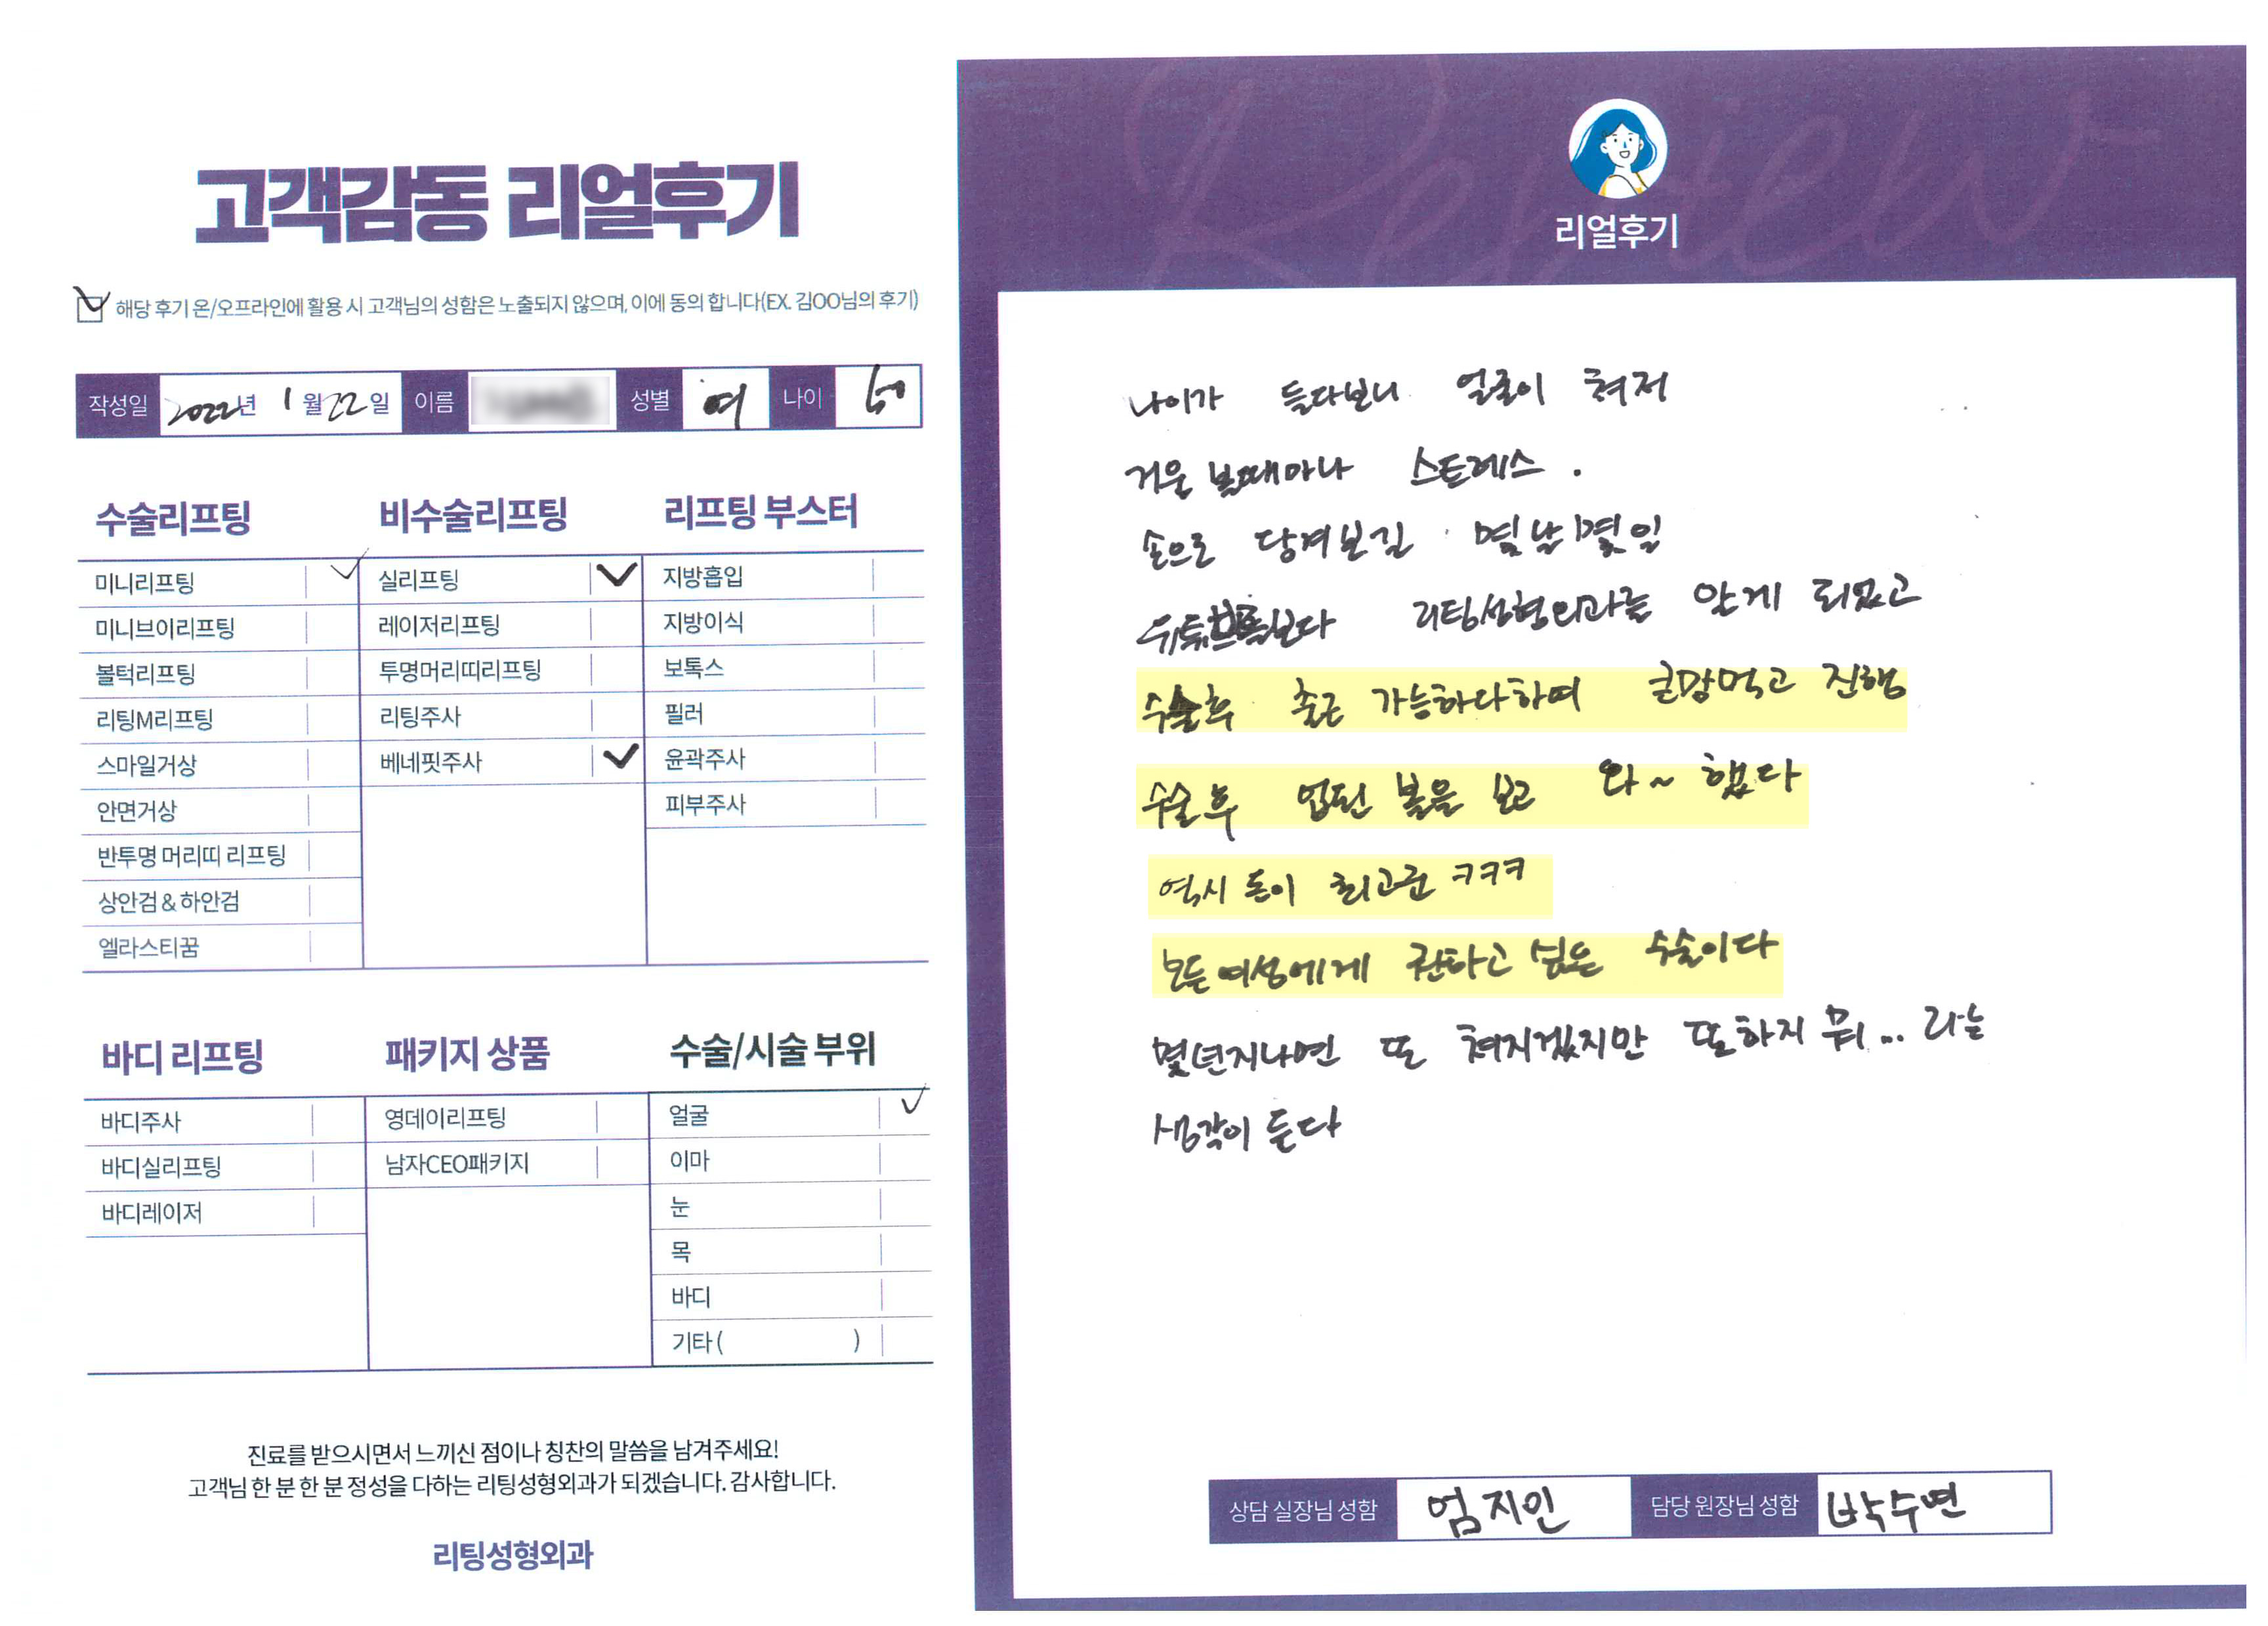 고객감동 리얼후기
해당 후기 온/오프라인에 활용 시 고객님의 성함은 노출되지 않으며, 이에 동의 합니다(EX. 김OO님의 후기)
작성일 2022년 1월 22일 이름 성별 여 나이 50
수술리프팅
미니리프팅
미니브이리프팅
볼턱리프팅
리팅M리프팅
스마일거상
안면거상
반투명 머리띠 리프팅
상안검 & 하안검
엘라스티꿈
비수술리프팅
실리프팅
레이저리프팅
투명머리띠리프팅
리팅주사
베네핏주사
리프팅 부스터
지방흡입
지방이식
보톡스
필러
윤곽주사
피부주사
바디 리프팅
바디주사
바디실리프팅
바디레이저
패키지 상품
영데이리프팅
남자CEO패키지
수술/시술 부위
얼굴
이마
눈
목
바디
기타 ( )
진료를 받으시면서 느끼신 점이나 칭찬의 말씀을 남겨주세요!
고객님 한 분 한 분 정성을 다하는 리팅성형외과가 되겠습니다. 감사합니다.
리팅성형외과
Review
리얼후기
나이가 들다보니 얼굴이 쳐저
거울 볼때마다 스트레스.
손으로 당겨보길 몇날몇일
유튜브를보다 리팅성형외과를 알게 되었고
수술후 출근 가능하다하여 큰맘먹고 진행
수술후 업된 볼을 보고 와~ 했다
역시 돈이 최고군 ㅋㅋㅋ
모든여성에게 권하고 싶은 수술이다
몇년지나면 또 쳐지겠지만 또하지 뭐... 라는
생각이 든다
상담 실장님 성함 엄지인 담당 원장님 성함 박수연